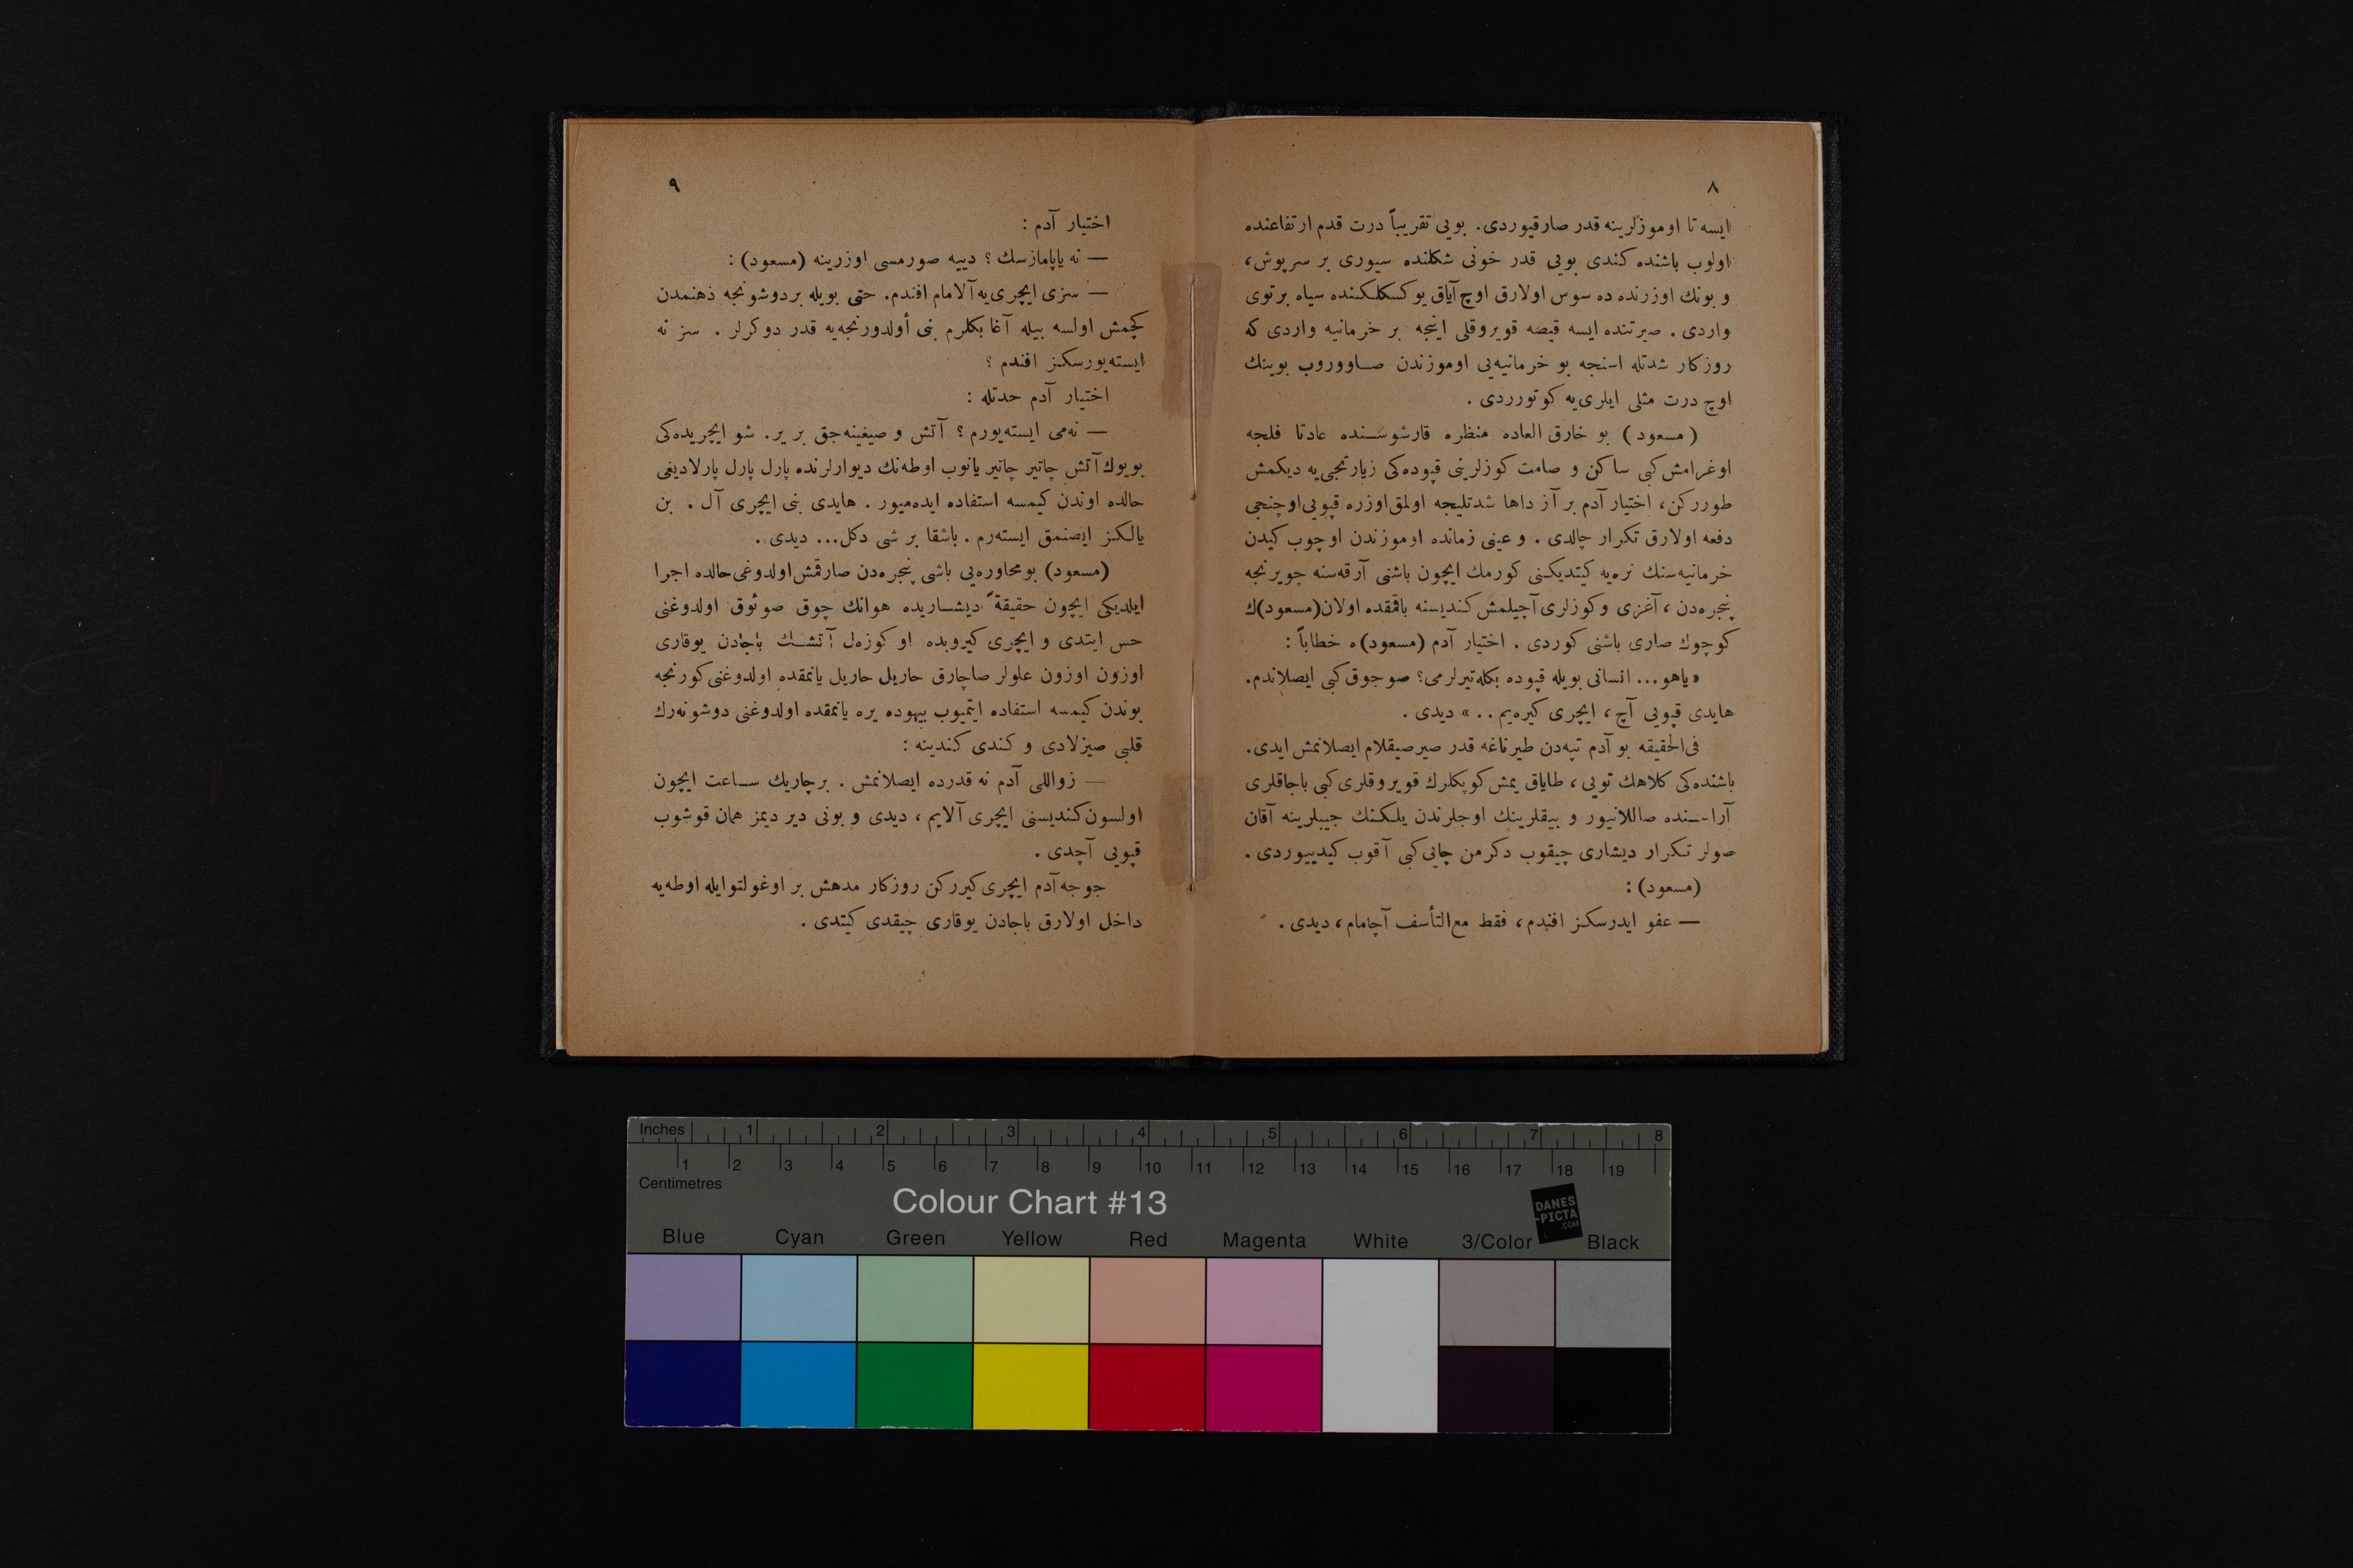 ٨
ایسه تا اوموزلرینه قدر صارقیوردی. بویی تقریباً درت قدم ارتفاعنده
اولوب باشنده کندی بویی قدر خونی شکلنده سیوری بر سرپوش،
و بونك اوزرنده ده سوس اولارق اوچ آیاق یوکسکلکنده سیاه برتوی
واردی . صیرتنده ایسه قیصه قویروقلی اینجه بر خرمانیه واردی که
روزکار شدتله اسنجه بو خرمانیه‌یی اوموزندن صاووروب بوینك
اوچ درت مثلی ایلری‌یه کوتورردی .
(مسعود) بو خارق العاده منظره قارشوسنده عادتا فلجه
اوغرامش کبی ساکن و صامت کوزلرینی قپوده‌کی زیارتجی‌یه دیکمش
طوررکن، اختیار آدم بر آز داها شدتلیجه اولمق اوزره قپویی اوچنجی
دفعه اولارق تکرار چالدی . و عینی زمانده اوموزندن اوچوب کیدن
خرمانیه‌سنك نره‌یه کیتدیکنی کورمك ایچون باشنی آرقه‌سنه چویرنجه
پنجره‌دن، آغزی وکوزلری آچیلمش کندیسنه باقمقده اولان(مسعود)ك
کوچوك صاری باشنی کوردی . اختیار آدم (مسعود)ه خطاباً :
«یاهو... انسانی بویله قپوده بکله‌تیرلرمی؟ صوجوق کبی ایصلاندم.
هایدی قپویی آچ، ایچری کیره‌یم ..» دیدی .
فی‌الحقیقه بو آدم تپه‌دن طیرناغه قدر صیرصیقلام ایصلانمش ایدی.
باشنده‌کی کلاهك تویی، طایاق یمش کوپکلرك قویروقلری کبی باجاقلری
آراسنده صاللانیور و بیقلرینك اوجلرندن یلکنك جیبلرینه آقان
صولر تکرار دیشاری چیقوب دکرمن چایی کبی آقوب کیدییوردی .
(مسعود) :
— عفو ایدرسکز افندم، فقط مع‌التأسف آچامام، دیدی .
٩
اختیار آدم :
— نه یاپامازسك ؟ دییه صورمسی اوزرینه (مسعود) :
— سزی ایچری‌یه آلامام افندم. حتی بویله بردوشونجه ذهنمدن
کچمش اولسه بیله آغا بکلرم بنی أولدورنجه‌یه قدر دوکرلر . سز نه
ایسته‌یورسکز افندم ؟
اختیار آدم حدتله :
— نه‌می ایسته‌یورم ؟ آتش و صیغینه‌جق بر یر. شو ایچریده‌کی
بویوك آتش چاتیر چاتیر یانوب اوطه‌نك دیوارلرنده پارل پارل پارلادیغی
حالده اوندن کیمسه استفاده ایده‌میور . هایدی بنی ایچری آل . بن
یالکز ایصنمق ایسته‌رم . باشقا بر شی دکل... دیدی .
(مسعود) بومحاوره‌یی باشی پنجره‌دن صارقمش اولدوغی حالده اجرا
ایلدیکی ایچون حقیقةً دیشاریده هوانك چوق صوئوق اولدوغنی
حس ایتدی و ایچری کیروبده او کوزه‌ل آتشك باجادن یوقاری
اوزون اوزون علولر صاچارق حاریل حاریل یانمقده اولدوغنی کورنجه
بوندن کیمسه استفاده ایتمیوب بیهوده یره یانمقده اولدوغنی دوشونه‌رك
قلبی صیزلادی و کندی کندینه :
— زواللی آدم نه قدرده ایصلانمش . برچاریك ساعت ایچون
اولسون کندیسنی ایچری آلایم، دیدی و بونی دیر دیمز همان قوشوب
قپویی آچدی .
جوجه آدم ایچری کیررکن روزکار مدهش بر اوغولتو ایله اوطه‌یه
داخل اولارق باجادن یوقاری چیقدی کیتدی .
Inches 1 2 3 4 5 6 7 8
1 2 3 4 5 6 7 8 9 10 11 12 13 14 15 16 17 18 19
Centimetres
Colour Chart #13
DANES
-PICTA
.COM
Blue Cyan Green Yellow Red Magenta White 3/Color Black